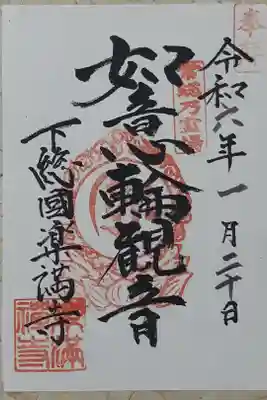 奉拝
令和六年一月二十日
如意輪観音
下総國楽満寺